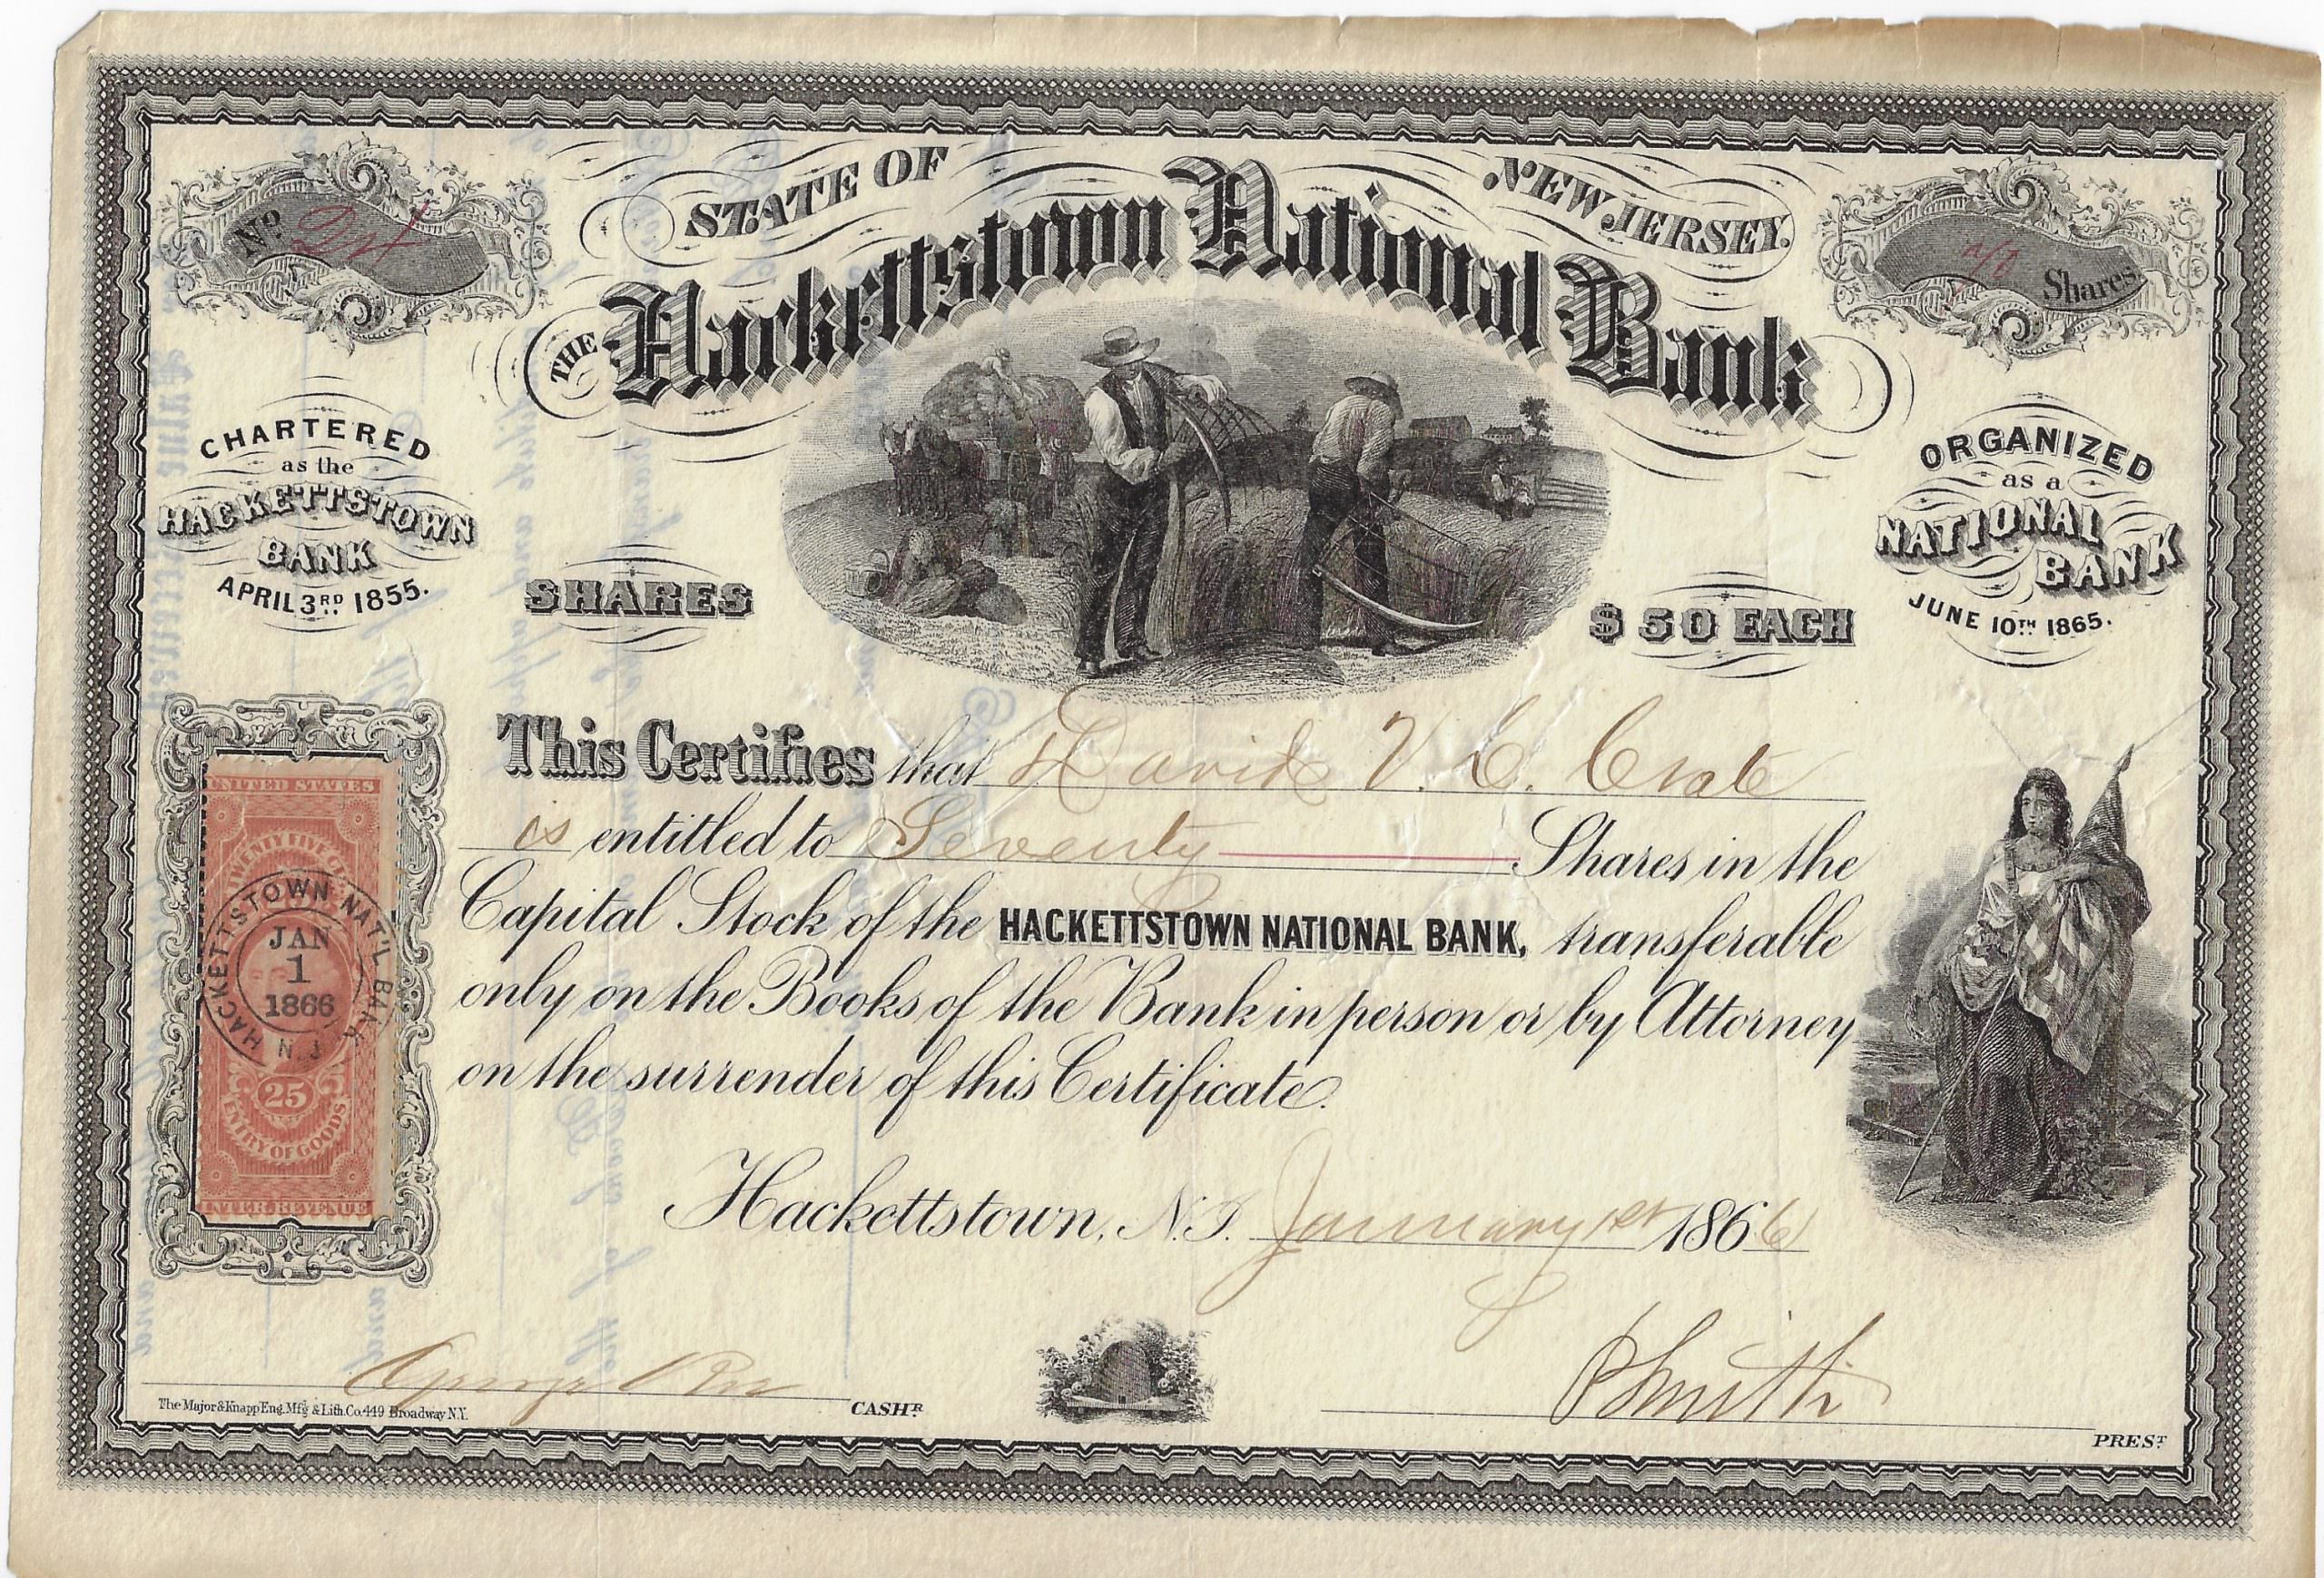 STATE OF NEW JERSEY.
No.
Shares.
THE Hackettstown National Bank
CHARTERED
as the
HACKETTSTOWN
BANK
APRIL 3RD 1855.
ORGANIZED
as a
NATIONAL
BANK
JUNE 10TH 1865.
SHARES
$50 EACH
This Certifies that David V. C. Crate
is entitled to Seventy Shares in the
Capital Stock of the HACKETTSTOWN NATIONAL BANK, transferable
only on the Books of the Bank in person or by Attorney
on the surrender of this Certificate.
Hackettstown, N.J. January 1st 1866
UNITED STATES
TWENTY FIVE
HACKETTSTOWN NAT'L BANK
JAN
1
1866
N.J.
25
ENTRY OF GOODS
INTER. REVENUE
George Roe CASHR
PSmith PREST
The Major & Knapp Eng. Mfg & Lith. Co. 449 Broadway N.Y.